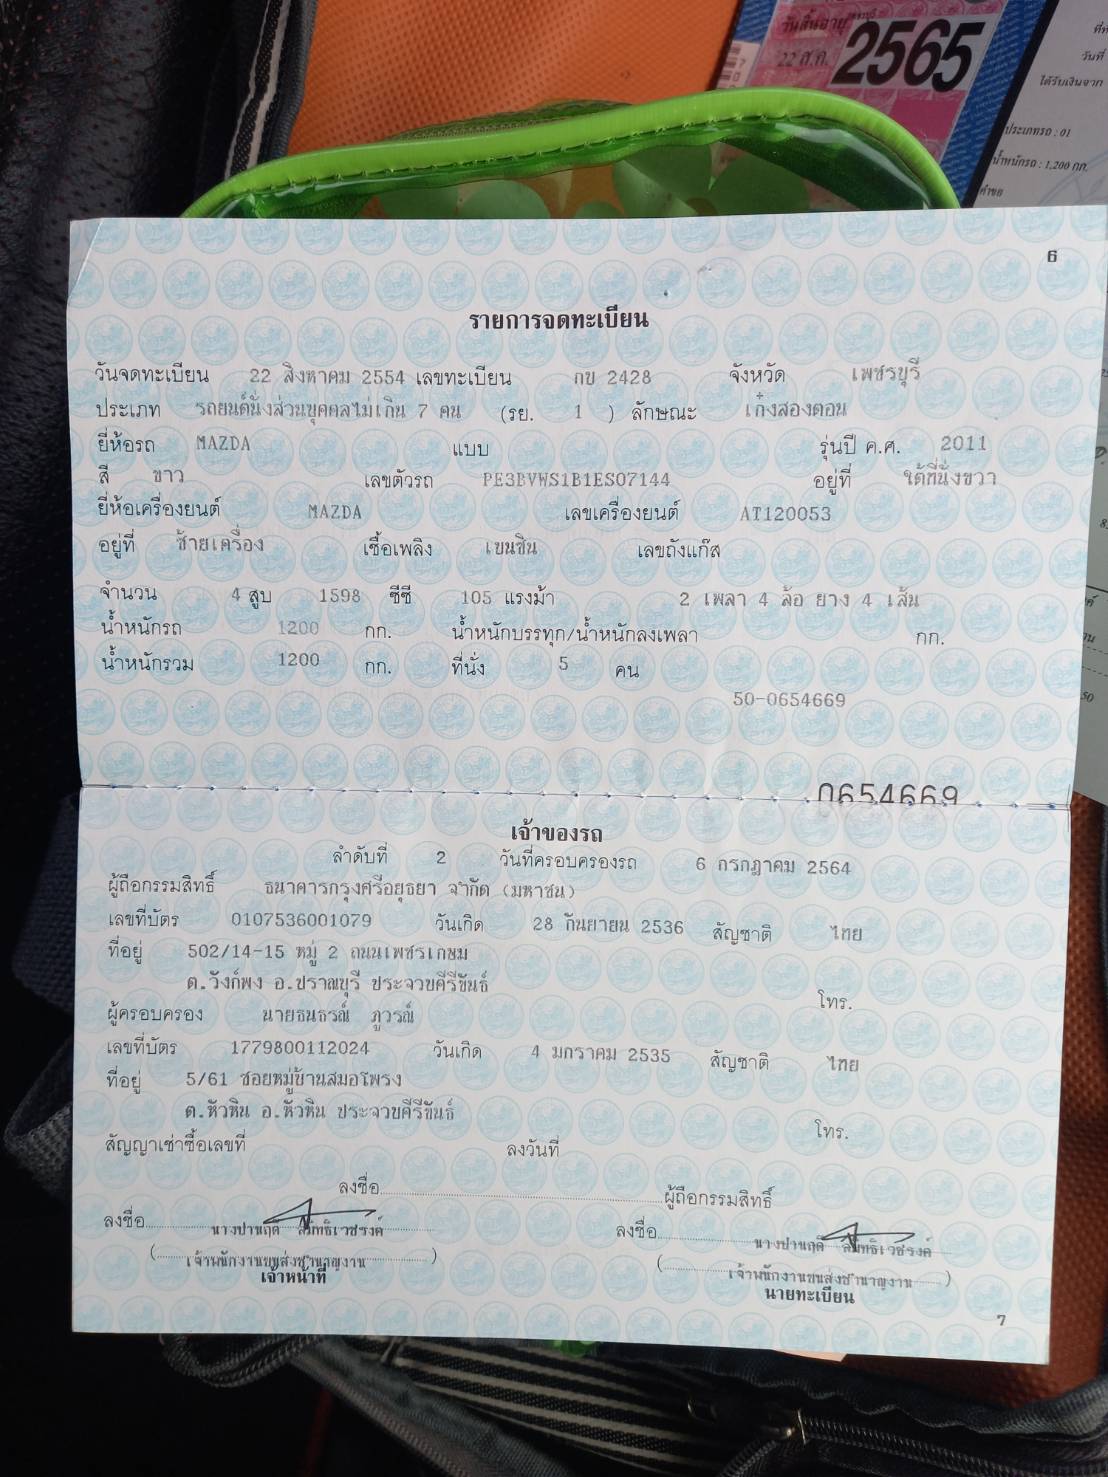 วันสิ้นอายุ
22 ส.ค. 2565
ที่ท
วันที่
ได้รับเงินจาก
ประเภทรถ : 01
น้ำหนักรถ : 1,200 กก.
คำขอ
6
รายการจดทะเบียน
วันจดทะเบียน 22 สิงหาคม 2554 เลขทะเบียน กข 2428 จังหวัด เพชรบุรี
ประเภท รถยนต์นั่งส่วนบุคคลไม่เกิน 7 คน (รย. 1 ) ลักษณะ เก๋งสองตอน
ยี่ห้อรถ MAZDA แบบ รุ่นปี ค.ศ. 2011
สี ขาว เลขตัวรถ PE3BVWS1B1ES07144 อยู่ที่ ใต้ที่นั่งขวา
ยี่ห้อเครื่องยนต์ MAZDA เลขเครื่องยนต์ AT120053
อยู่ที่ ซ้ายเครื่อง เชื้อเพลิง เบนซิน เลขถังแก๊ส
จำนวน 4 สูบ 1598 ซีซี 105 แรงม้า 2 เพลา 4 ล้อ ยาง 4 เส้น
น้ำหนักรถ 1200 กก. น้ำหนักบรรทุก/น้ำหนักลงเพลา กก.
น้ำหนักรวม 1200 กก. ที่นั่ง 5 คน
50-0654669
0654669
เจ้าของรถ
ลำดับที่ 2 วันที่ครอบครองรถ 6 กรกฎาคม 2564
ผู้ถือกรรมสิทธิ์ ธนาคารกรุงศรีอยุธยา จำกัด (มหาชน)
เลขที่บัตร 0107536001079 วันเกิด 28 กันยายน 2536 สัญชาติ ไทย
ที่อยู่ 502/14-15 หมู่ 2 ถนนเพชรเกษม
ต.วังก์พง อ.ปราณบุรี ประจวบคีรีขันธ์ โทร.
ผู้ครอบครอง นายธนธรณ์ ภูวรณ์
เลขที่บัตร 1779800112024 วันเกิด 4 มกราคม 2535 สัญชาติ ไทย
ที่อยู่ 5/61 ซอยหมู่บ้านสมอโพรง
ต.หัวหิน อ.หัวหิน ประจวบคีรีขันธ์ โทร.
สัญญาเช่าซื้อเลขที่ ลงวันที่
ลงชื่อ ผู้ถือกรรมสิทธิ์
ลงชื่อ ลงชื่อ
( เจ้าพนักงานขนส่งชำนาญงาน ) ( เจ้าพนักงานขนส่งชำนาญงาน )
เจ้าหน้าที่ นายทะเบียน
7